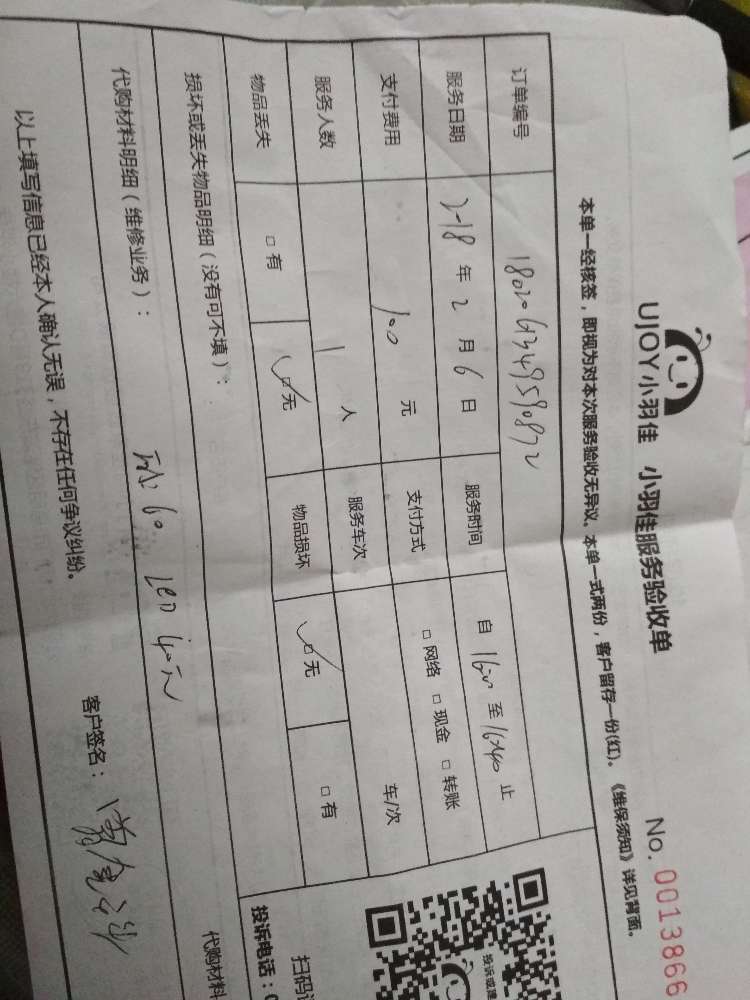 UJOY小羽佳 小羽佳服务验收单
No. 0013866
本单一经核签，即视为对本次服务验收无异议。本单一式两份，客户留存一份(红)。《维保须知》详见背面。
订单编号
服务日期 年 2 月 6 日 服务时间 自 至 止
支付费用 100 元 支付方式 □ 网络 □ 现金 □ 转账
服务人数 1 人 服务车次 车/次
物品丢失 □ 有 □ 无 物品损坏 □ 无 □ 有
损坏或丢失物品明细（没有可不填）：
代购材料明细（维修业务）： 60. LED 40元
代购材料
以上填写信息已经本人确认无误，不存在任何争议纠纷。
客户签名：
扫码
投诉电话：